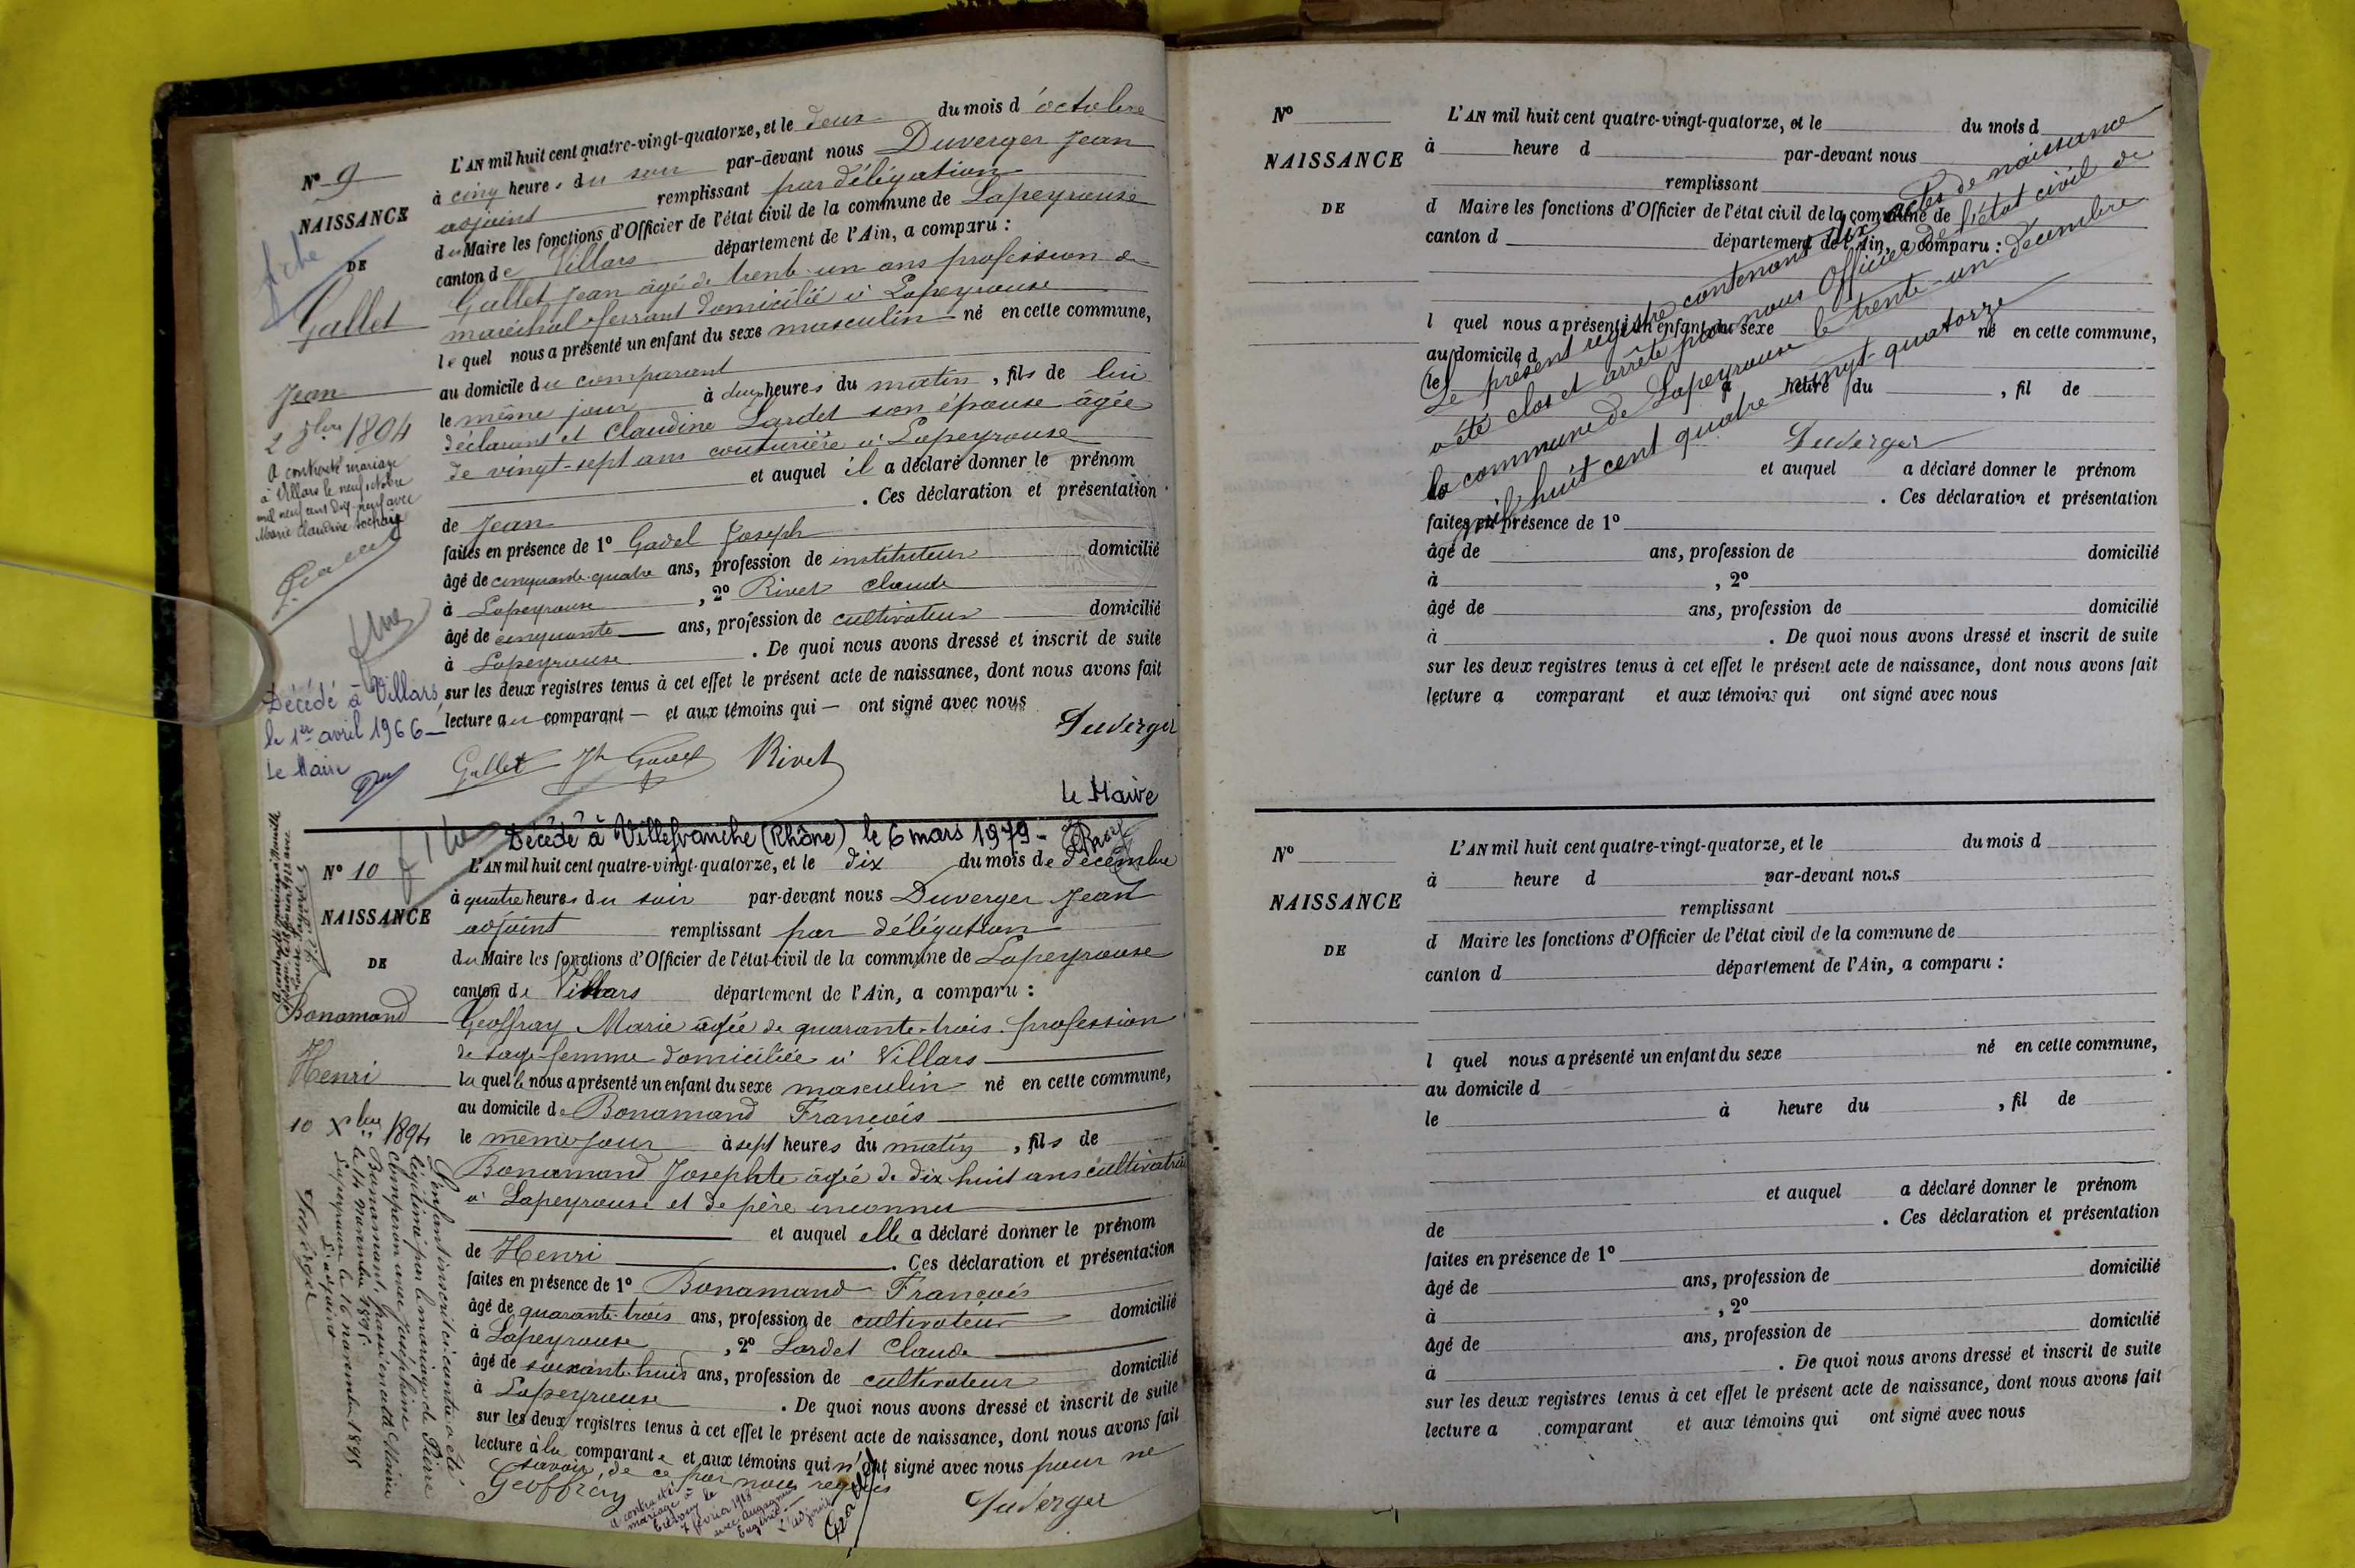 N° 9
NAISSANCE
DE
Gallet
Jean
2 8bre 1894
A contracté mariage
à Villars le neuf octobre
mil neuf cent dix-neuf avec
Marie Claudine
Décédé à Villars
le 1er avril 1966
Le Maire
L'AN mil huit cent quatre-vingt-quatorze, et le deux du mois d'octobre
à cinq heures du soir par-devant nous Duverger Jean
adjoint remplissant par délégation
du Maire les fonctions d'Officier de l'état civil de la commune de Lapeyrouse
canton de Villars département de l'Ain, a comparu :
Gallet Jean âgé de trente-un ans profession de
maréchal ferrant domicilié à Lapeyrouse
lequel nous a présenté un enfant du sexe masculin né en cette commune,
au domicile du comparant
le même jour à deux heures du matin, fils de lui
déclarant et Claudine Lardet son épouse âgée
de vingt-sept ans couturière à Lapeyrouse
et auquel il a déclaré donner le prénom
de Jean . Ces déclaration et présentation
faites en présence de 1° Gavel Joseph
âgé de cinquante-quatre ans, profession de instituteur domicilié
à Lapeyrouse, 2° Rivet Claude
âgé de cinquante ans, profession de cultivateur domicilié
à Lapeyrouse. De quoi nous avons dressé et inscrit de suite
sur les deux registres tenus à cet effet le présent acte de naissance, dont nous avons fait
lecture au comparant et aux témoins qui ont signé avec nous
Duverger
Gallet Jh Gavel Rivet
Le Maire
Décédé à Villefranche (Rhône) le 6 mars 1979 -
N° 10
NAISSANCE
DE
Bonamand
Henri
10 Xbre 1894
L'enfant inscrit ci-contre a été
légitimé par le mariage de Pierre
Comperon avec Joséphine
Bonamand, passé en cette Mairie
le 14 novembre 1895.
Lapeyrouse le 16 novembre 1895
L'adjoint
Duverger
L'AN mil huit cent quatre-vingt-quatorze, et le dix du mois de décembre
à quatre heures du soir par-devant nous Duverger Jean
adjoint remplissant par délégation
du Maire les fonctions d'Officier de l'état civil de la commune de Lapeyrouse
canton de Villars département de l'Ain, a comparu :
Geoffray Marie âgée de quarante-trois profession
de sage-femme domiciliée à Villars
laquelle nous a présenté un enfant du sexe masculin né en cette commune,
au domicile de Bonamand François
le même jour à sept heures du matin, fils de
Bonamand Josephte âgée de dix huit ans cultivatrice
à Lapeyrouse et de père inconnu
et auquel elle a déclaré donner le prénom
de Henri . Ces déclaration et présentation
faites en présence de 1° Bonamand François
âgé de quarante-trois ans, profession de cultivateur domicilié
à Lapeyrouse, 2° Lardet Claude
âgé de soixante-huit ans, profession de cultivateur domicilié
à Lapeyrouse. De quoi nous avons dressé et inscrit de suite
sur les deux registres tenus à cet effet le présent acte de naissance, dont nous avons fait
lecture à la comparante et aux témoins qui n'ont signé avec nous pour ne
savoir, de ce par nous requis
Geoffray
Duverger
A contracté
mariage à
le
7 février 1918
avec
Eugénie
L'adjoint
N°
NAISSANCE
DE
L'AN mil huit cent quatre-vingt-quatorze, et le du mois d
à heure d par-devant nous
remplissant
d Maire les fonctions d'Officier de l'état civil de la commune de
canton d département de l'Ain, a comparu :
l quel nous a présenté un enfant du sexe né en cette commune,
au domicile d
le à heure du , fil de
et auquel a déclaré donner le prénom
. Ces déclaration et présentation
faites en présence de 1°
âgé de ans, profession de domicilié
à , 2°
âgé de ans, profession de domicilié
à . De quoi nous avons dressé et inscrit de suite
sur les deux registres tenus à cet effet le présent acte de naissance, dont nous avons fait
lecture a comparant et aux témoins qui ont signé avec nous
Le présent registre contenant dix actes de naissance
a été clos et arrêté par nous Officier de l'état civil de
la commune de Lapeyrouse le trente-un décembre
mil huit cent quatre-vingt-quatorze
Duverger
N°
NAISSANCE
DE
L'AN mil huit cent quatre-vingt-quatorze, et le du mois d
à heure d par-devant nous
remplissant
d Maire les fonctions d'Officier de l'état civil de la commune de
canton d département de l'Ain, a comparu :
l quel nous a présenté un enfant du sexe né en cette commune,
au domicile d
le à heure du , fil de
et auquel a déclaré donner le prénom
de . Ces déclaration et présentation
faites en présence de 1°
âgé de ans, profession de domicilié
à , 2°
âgé de ans, profession de domicilié
à . De quoi nous avons dressé et inscrit de suite
sur les deux registres tenus à cet effet le présent acte de naissance, dont nous avons fait
lecture a comparant et aux témoins qui ont signé avec nous